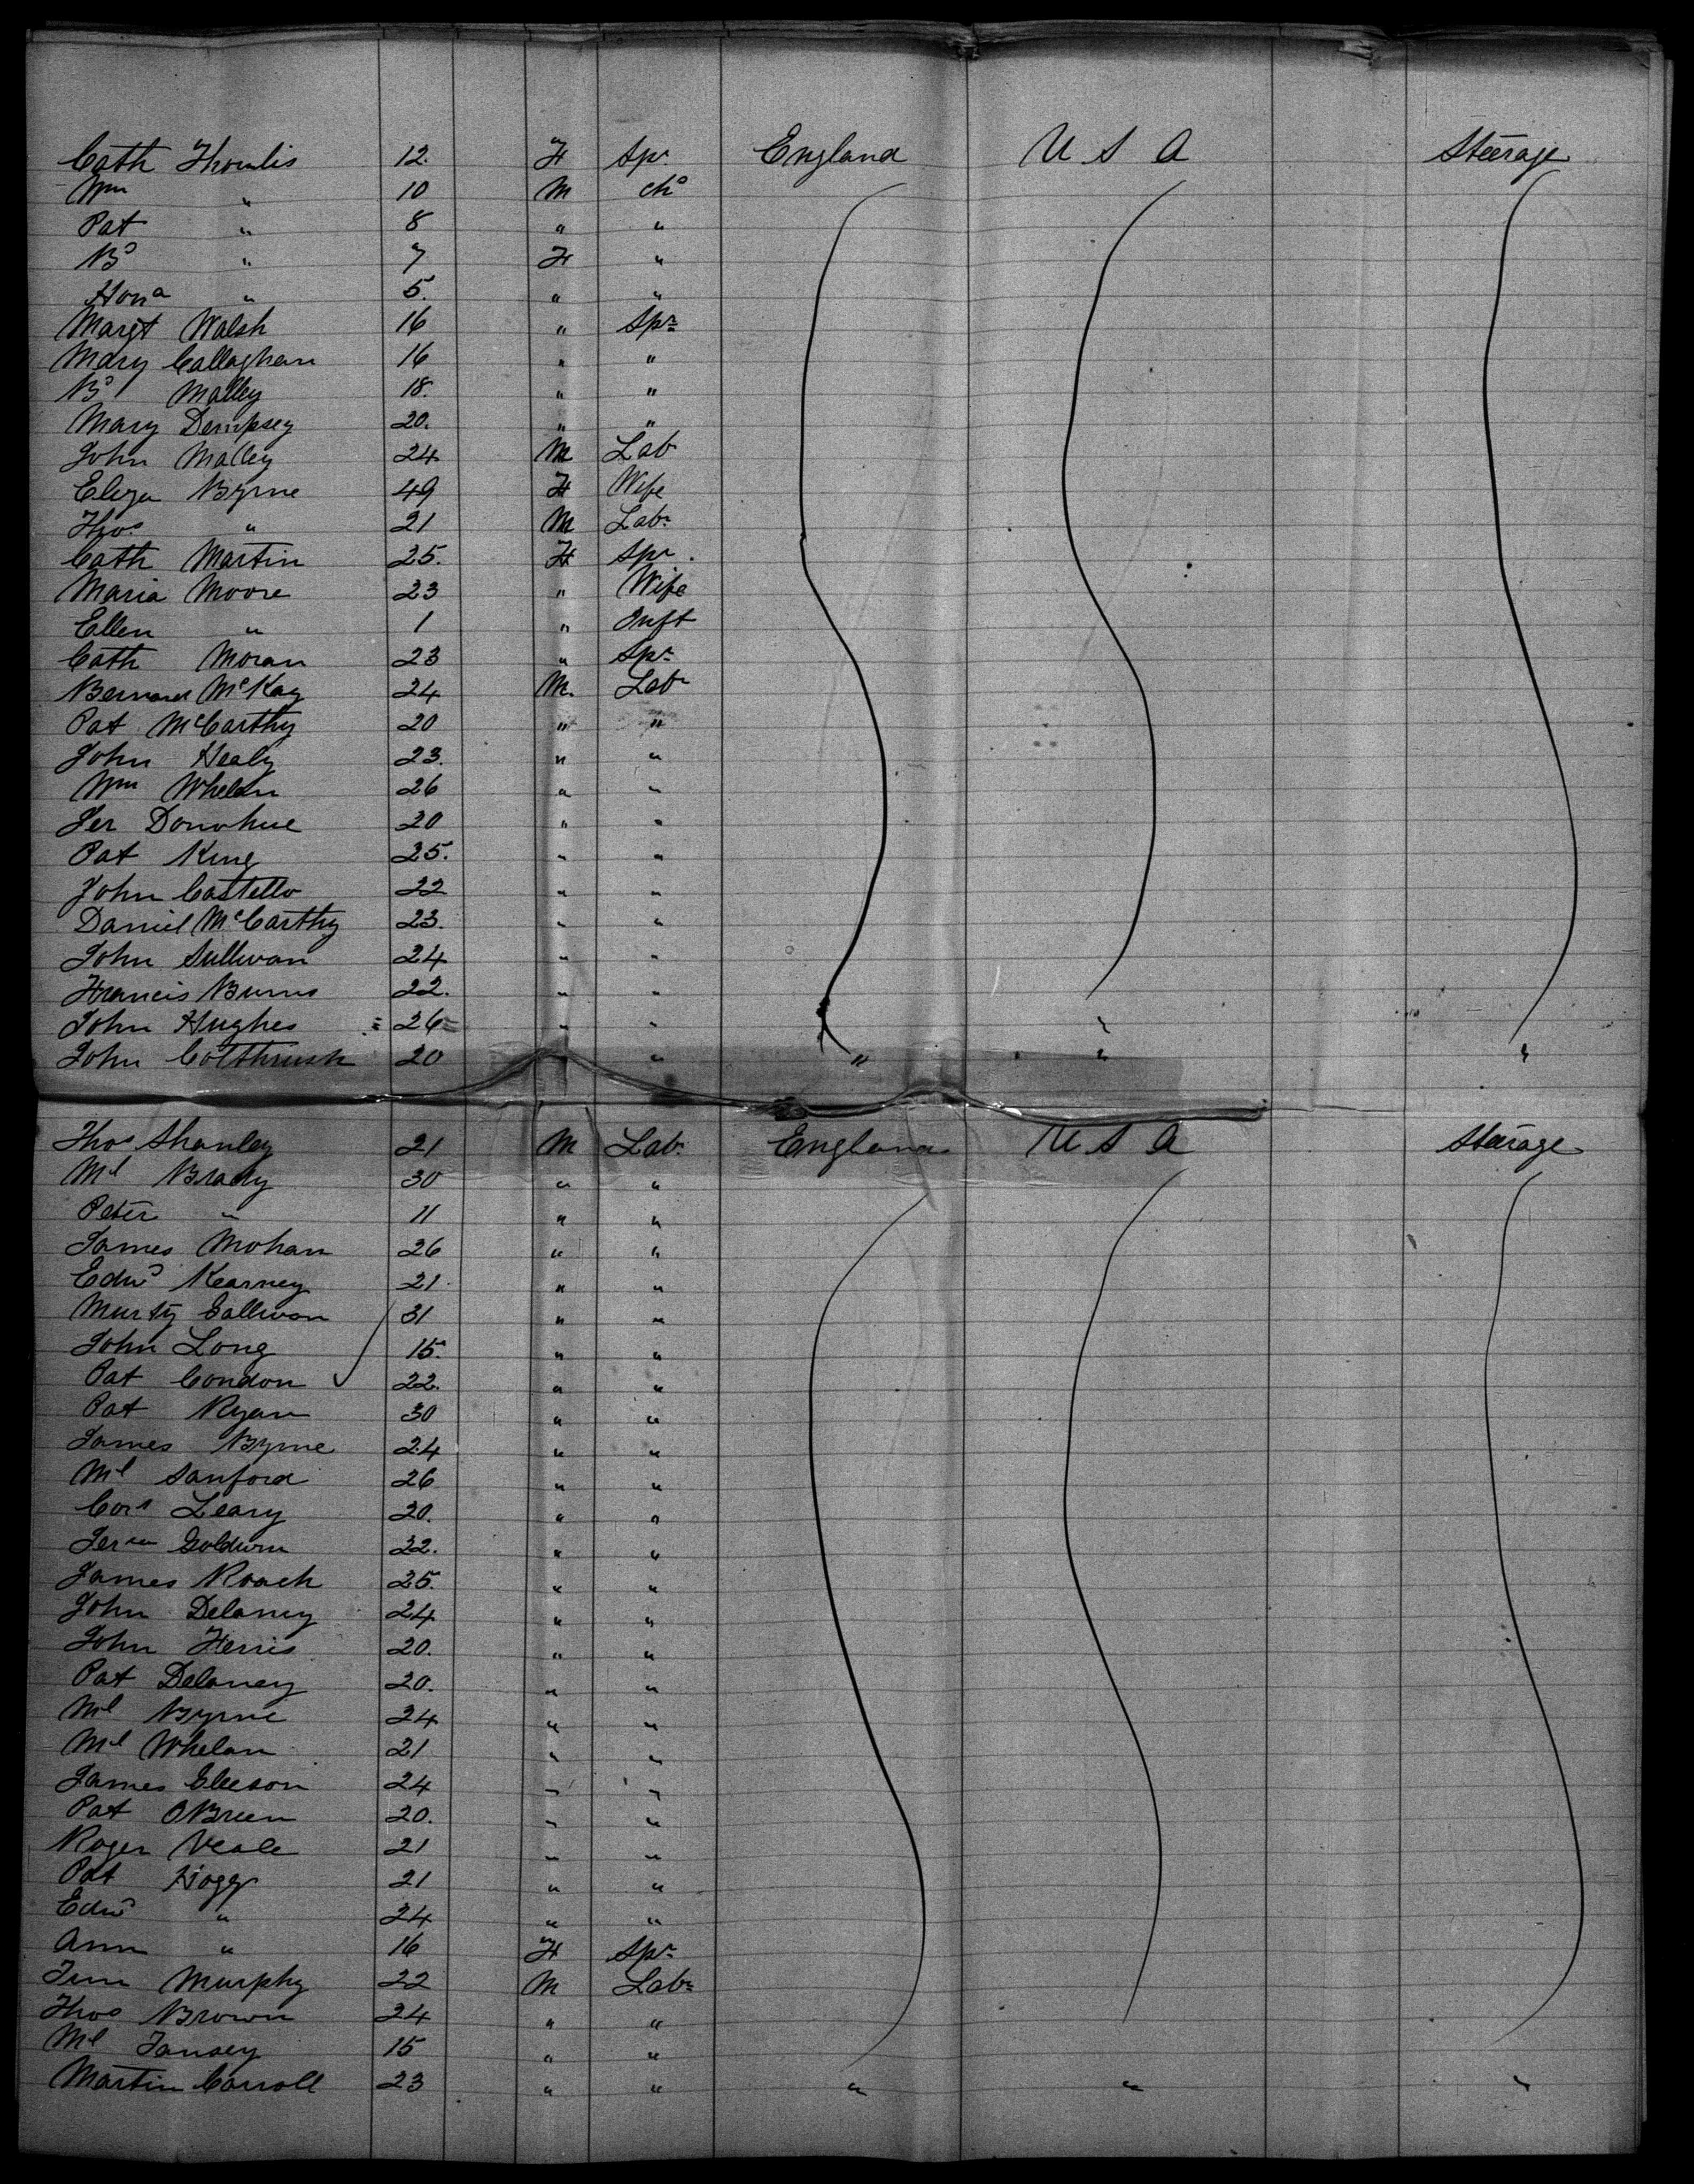 Cath Thornlis 12. F Spr. England U S A Steerage
Wm " 10 M chd
Pat " 8 " "
Bd " 7 F "
Hona " 5. " "
Margt Walsh 16 " Spr
Mary Callaghan 16 " "
Bd Malley 18. " "
Mary Dempsey 20. " "
John Malley 24 M Lab
Eliza Byrne 49 F Wife
Thos. " 21 M Labr
Cath Martin 25. F Spr.
Maria Moore 23 " Wife
Ellen " 1 " Inft
Cath Moran 23 " Spr
Bernard McKay 24 M. Labr
Pat McCarthy 20 " "
John Healy 23. " "
Wm Whelan 26 " "
Jer Donohue 20 " "
Pat King 25. " "
John Costello 22 " "
Daniel McCarthy 23. " "
John Sullivan 24 " "
Francis Burns 22. " "
John Hughes 26 " " "
John Colthrush 20 " " " "
Thos Shanley 21 M Labr England U S A Steerage
Ml Brady 30 " "
Peter " 11 " "
James Mohan 26 " "
Edwd Kearney 21. " "
Murty Sullivan 31 " "
John Long 15. " "
Pat Condon 22. " "
Pat Ryan 30 " "
James Byrne 24 " "
Ml Sanford 26 " "
Cors Leary 20. " "
Jerm Goldwin 22. " "
James Roach 25. " "
John Delaney 24 " "
John Ferris 20. " "
Pat Delaney 20. " "
Ml Byrne 24 " "
Ml Whelan 21 " "
James Gleeson 24 " "
Pat OBrien 20. " "
Roger Veale 21 " "
Pat Hogg 21 " "
Edwd " 24 " "
Ann " 16 F Spr
Jim Murphy 22 M Labr
Thos Brown 24 " "
Ml Tansey 15 " "
Martin Carroll 23 " " " " "